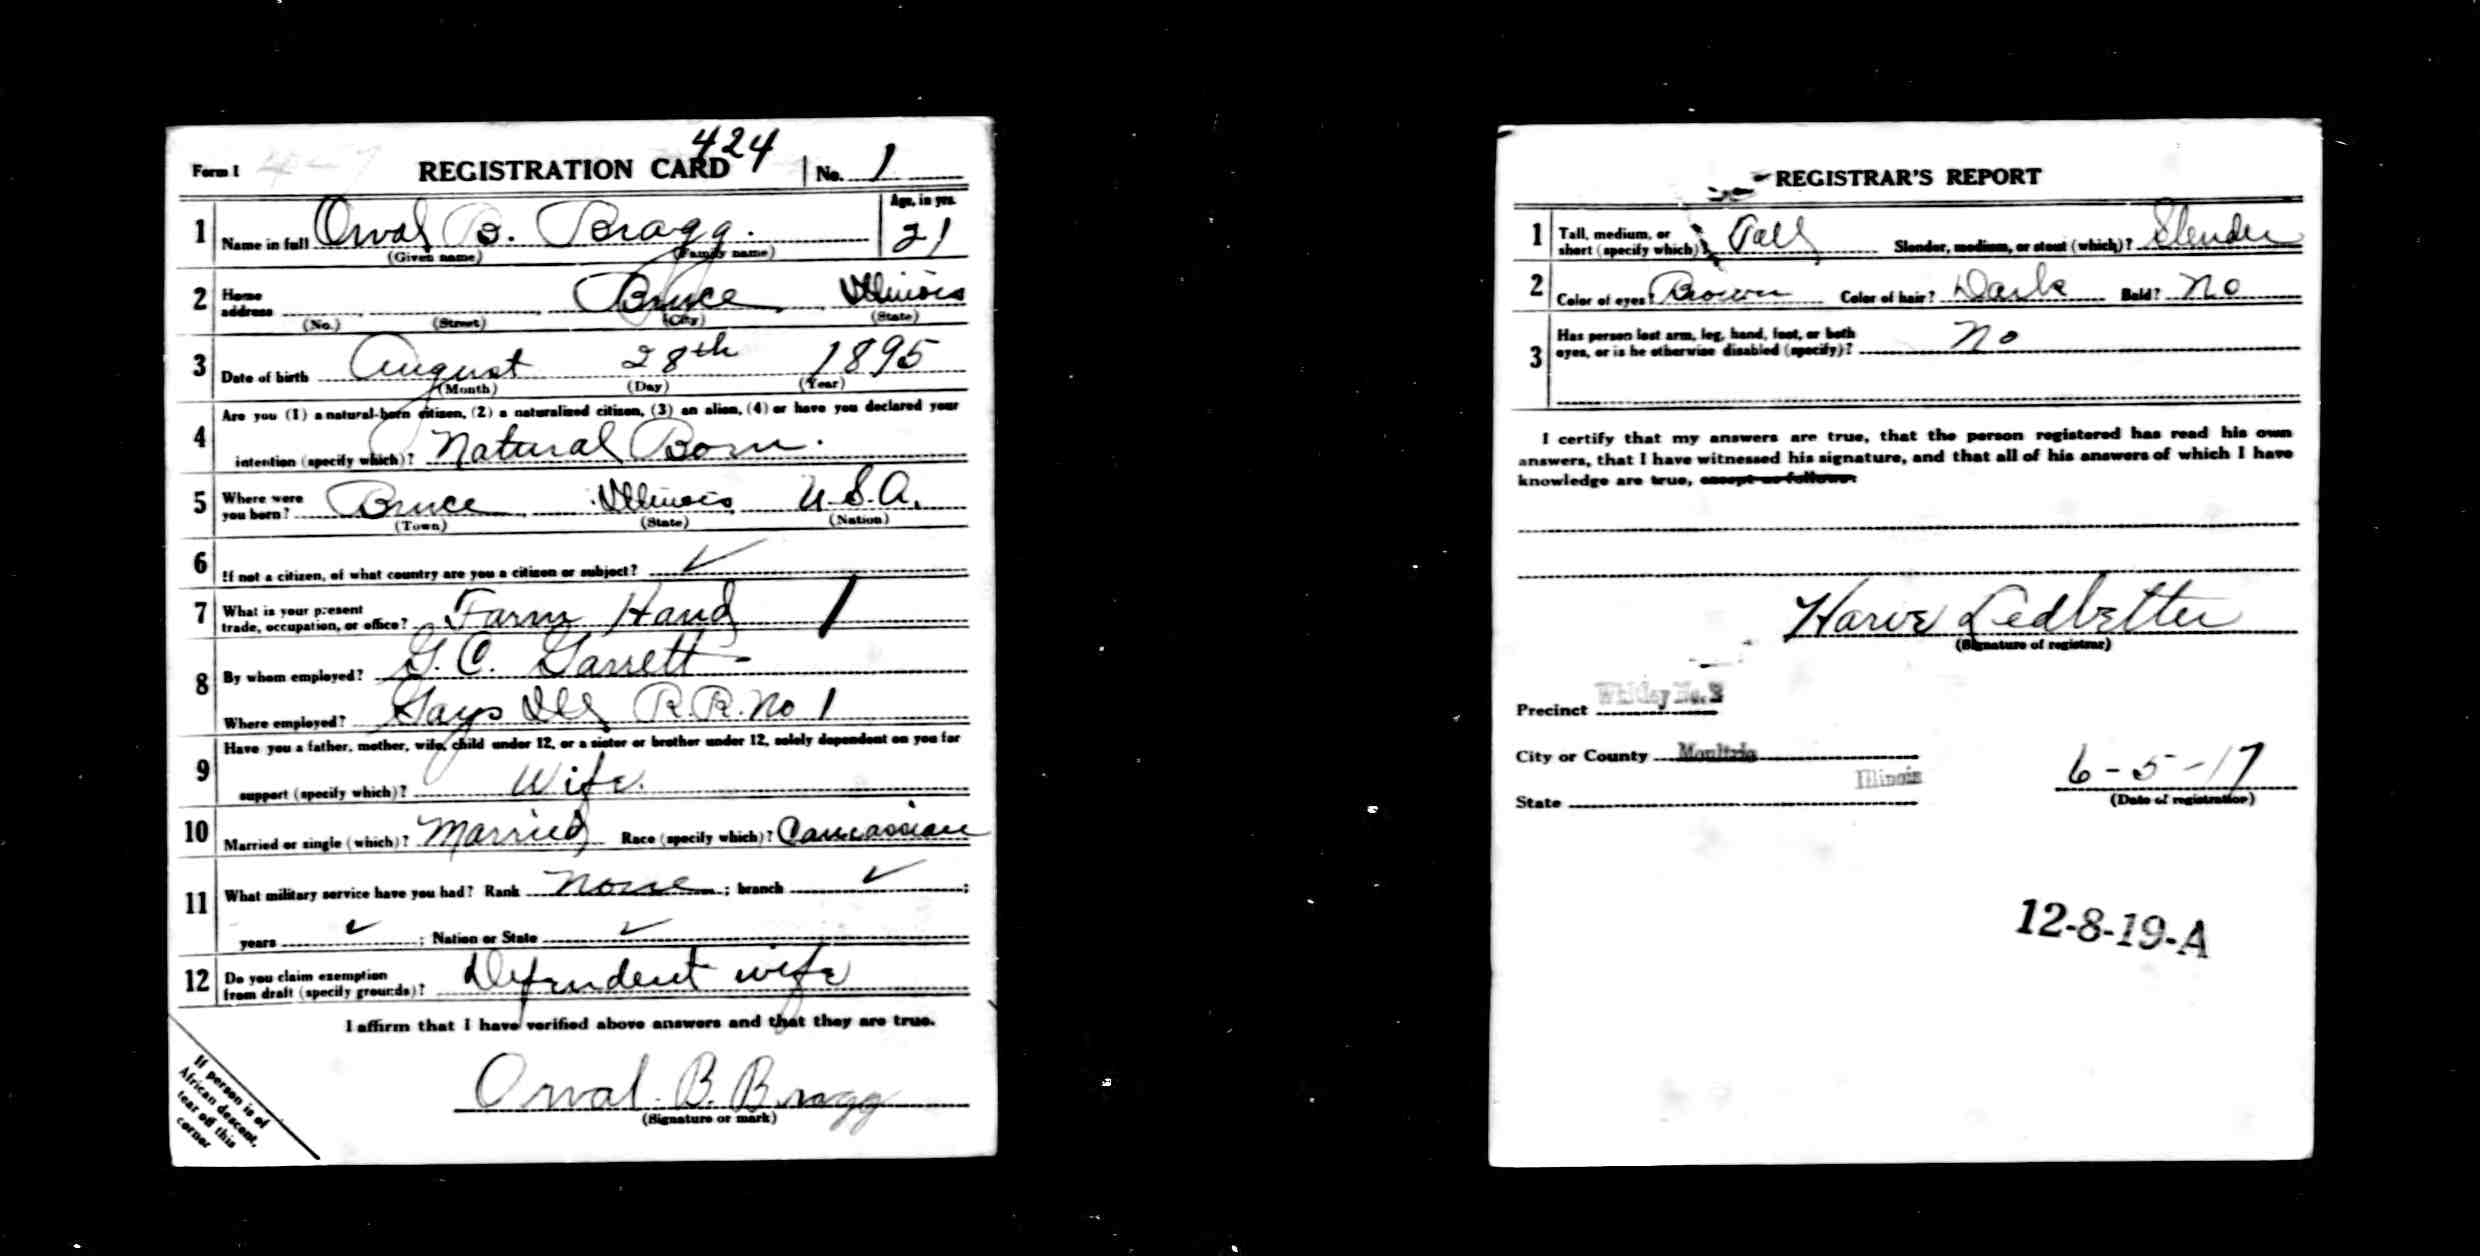 424
Form 1 REGISTRATION CARD No. 1
Age, in yrs.
1 Name in full Orval B. Bragg. 21
(Given name) (Family name)
2 Home address Bruce Illinois
(No.) (Street) (City) (State)
3 Date of birth August 28th 1895
(Month) (Day) (Year)
Are you (1) a natural-born citizen, (2) a naturalized citizen, (3) an alien, (4) or have you declared your
4 intention (specify which)? Natural Born.
5 Where were you born? Bruce Illinois U.S.A.
(Town) (State) (Nation)
6 If not a citizen, of what country are you a citizen or subject? ✓
7 What is your present trade, occupation, or office? Farm Hand 1
8 By whom employed? G. C. Garrett
Where employed? Gays Ills R.R. No 1
Have you a father, mother, wife, child under 12, or a sister or brother under 12, solely dependent on you for
9 support (specify which)? Wife.
10 Married or single (which)? Married Race (specify which)? Caucassian
11 What military service have you had? Rank None ; branch ✓ ;
years ✓ ; Nation or State ✓
12 Do you claim exemption from draft (specify grounds)? Dependent wife
I affirm that I have verified above answers and that they are true.
Orval. B. Bragg
(Signature or mark)
If person is of
African descent,
tear off this
corner
REGISTRAR'S REPORT
1 Tall, medium, or short (specify which)? Tall Slender, medium, or stout (which)? Slender
2 Color of eyes? Brown Color of hair? Dark Bald? No
3 Has person lost arm, leg, hand, foot, or both
eyes, or is he otherwise disabled (specify)? No
I certify that my answers are true, that the person registered has read his own
answers, that I have witnessed his signature, and that all of his answers of which I have
knowledge are true, except as follows:
Harve Ledbetter
(Signature of registrar)
Precinct Whitley No.
City or County Moultrie
Illinois
State
6-5-17
(Date of registration)
12-8-19-A